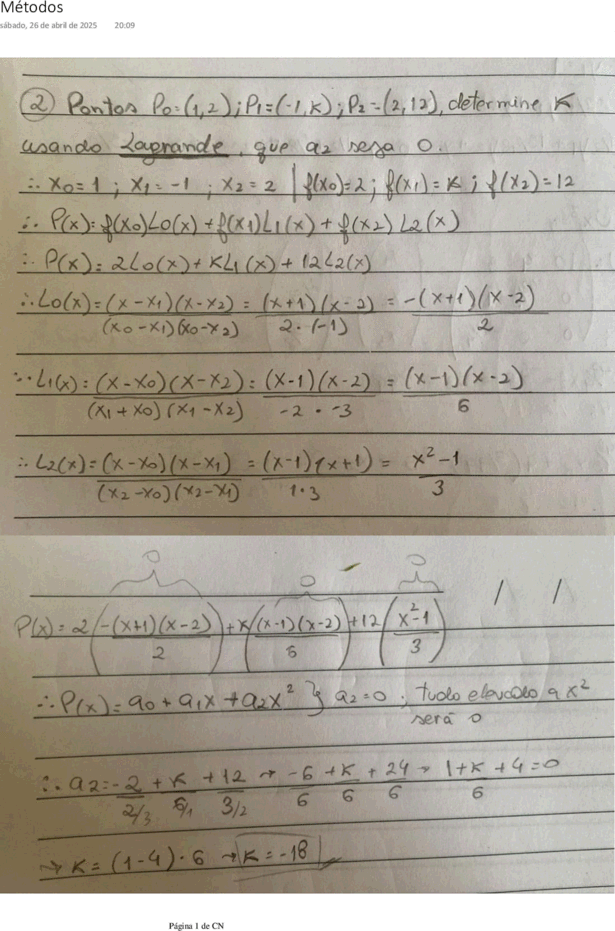 Métodos
sábado, 26 de abril de 2025 20:09
② Pontos P₀=(1,2); P₁=(-1,K); P₂=(2,12), determine K
usando Lagrande, que a₂ seja 0.
∴ X₀=1 ; X₁=-1 ; X₂=2 | f(x₀)=2; f(x₁)=K ; f(x₂)=12
∴ P(x)=f(x₀)L₀(x)+f(x₁)L₁(x)+f(x₂)L₂(x)
∴ P(x)=2L₀(x)+KL₁(x)+12L₂(x)
∴ L₀(x)=(x-x₁)(x-x₂) = (x+1)(x-2) = -(x+1)(x-2)
(x₀-x₁)(x₀-x₂) 2·(-1) 2
∵ L₁(x)=(x-x₀)(x-x₂) = (x-1)(x-2) = (x-1)(x-2)
(x₁+x₀)(x₁-x₂) -2·-3 6
∴ L₂(x)=(x-x₀)(x-x₁) = (x-1)(x+1) = x²-1
(x₂-x₀)(x₂-x₁) 1·3 3
0 0 0 / /
P(x)=2(-(x+1)(x-2))+K((x-1)(x-2))+12(x²-1)
2 6 3
∴ P(x)=a₀+a₁x+a₂x² } a₂=0 ; tudo elevado a x²
será 0
∴ a₂=-2+K+12 → -6+K+24 → 1+K+4=0
2/3 6/1 3/2 6 6 6 6
→ K=(1-4)·6 → K=-18
Página 1 de CN